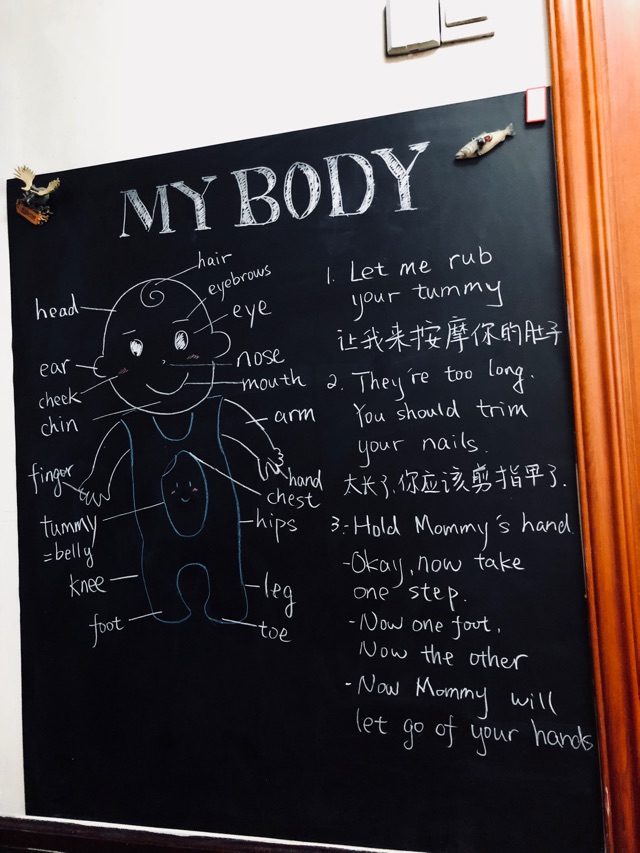 MY BODY
hair
eyebrows
head
eye
ear
nose
cheek
mouth
chin
arm
finger
hand
chest
tummy
=belly
hips
knee
leg
foot
toe
1. Let me rub
your tummy
让我来按摩你的肚子
2. They're too long.
You should trim
your nails.
太长了,你应该剪指甲了.
3.-Hold Mommy's hand.
-Okay, now take
one step.
-Now one foot,
Now the other
-Now Mommy will
let go of your hands